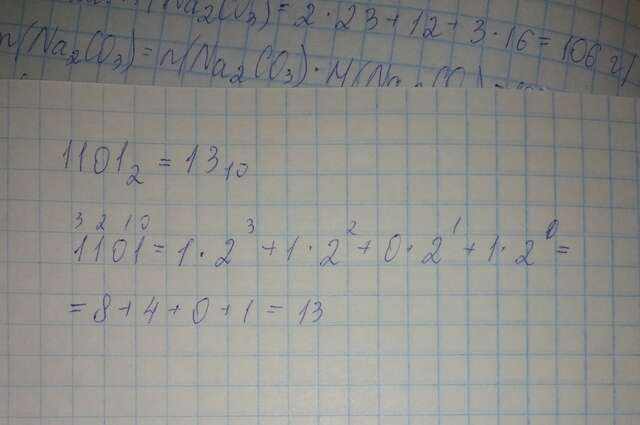 (Na₂CO₃) = 2 · 23 + 12 + 3 · 16 = 106 г/
m(Na₂CO₃) = n(Na₂CO₃) · M(Na₂CO₃) =
1101₂ = 13₁₀
3 2 1 0
1101 = 1 · 2³ + 1 · 2² + 0 · 2¹ + 1 · 2⁰ =
= 8 + 4 + 0 + 1 = 13